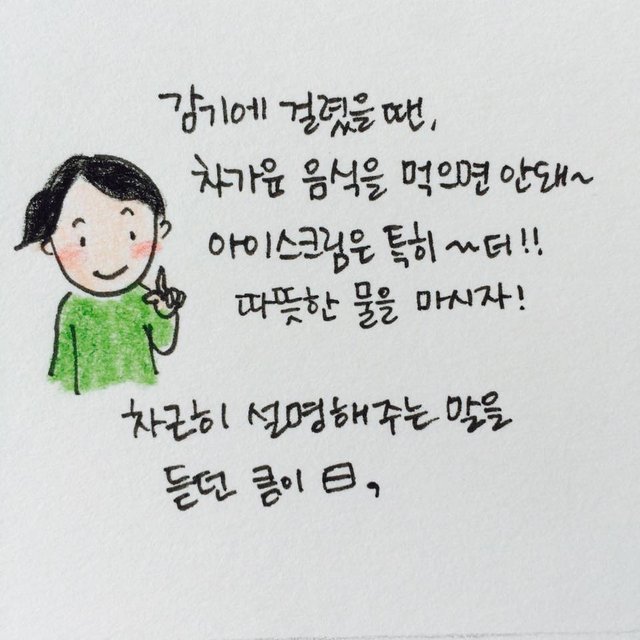 감기에 걸렸을 땐,
차가운 음식을 먹으면 안돼~
아이스크림은 특히 ~더!!
따뜻한 물을 마시자!
차근히 설명해주는 말을
듣던 콤이 曰,